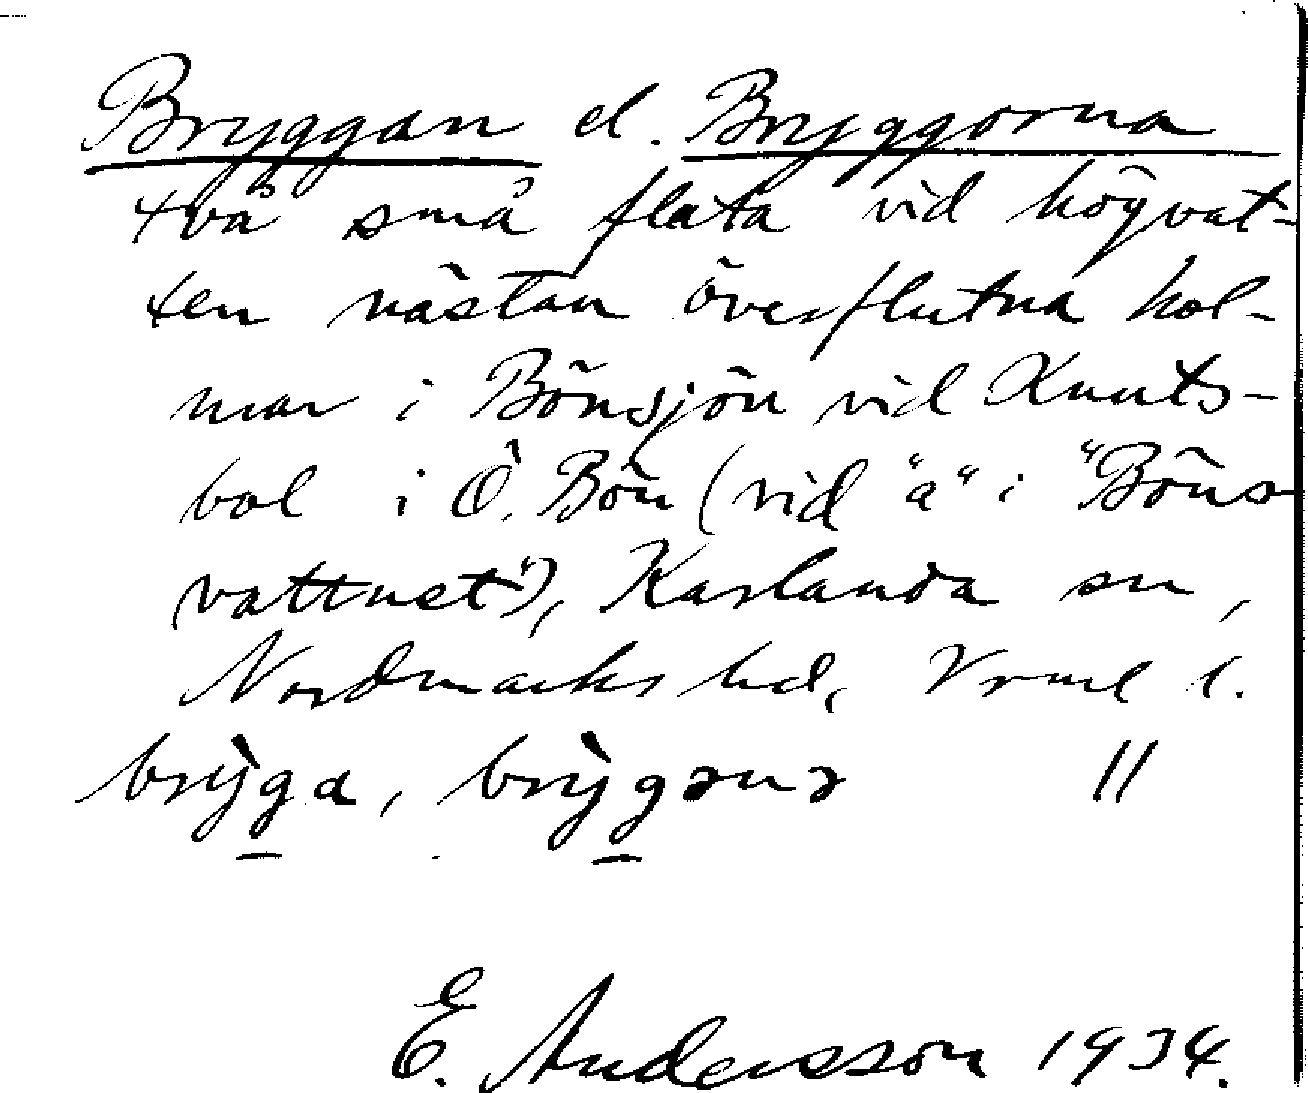 Bryggan el. Bryggorna
två små flata vid högvat-
ten nästan överflutna hol-
mar i Bönsjön vid Knuts-
bol i Ö. Bön (vid "a" i "Böns-
vattnet"), Karlanda sn,
Nordmarks hd, Vrml l.
brỳga, brỳgɔnɔ //
E. Andersson 1934.